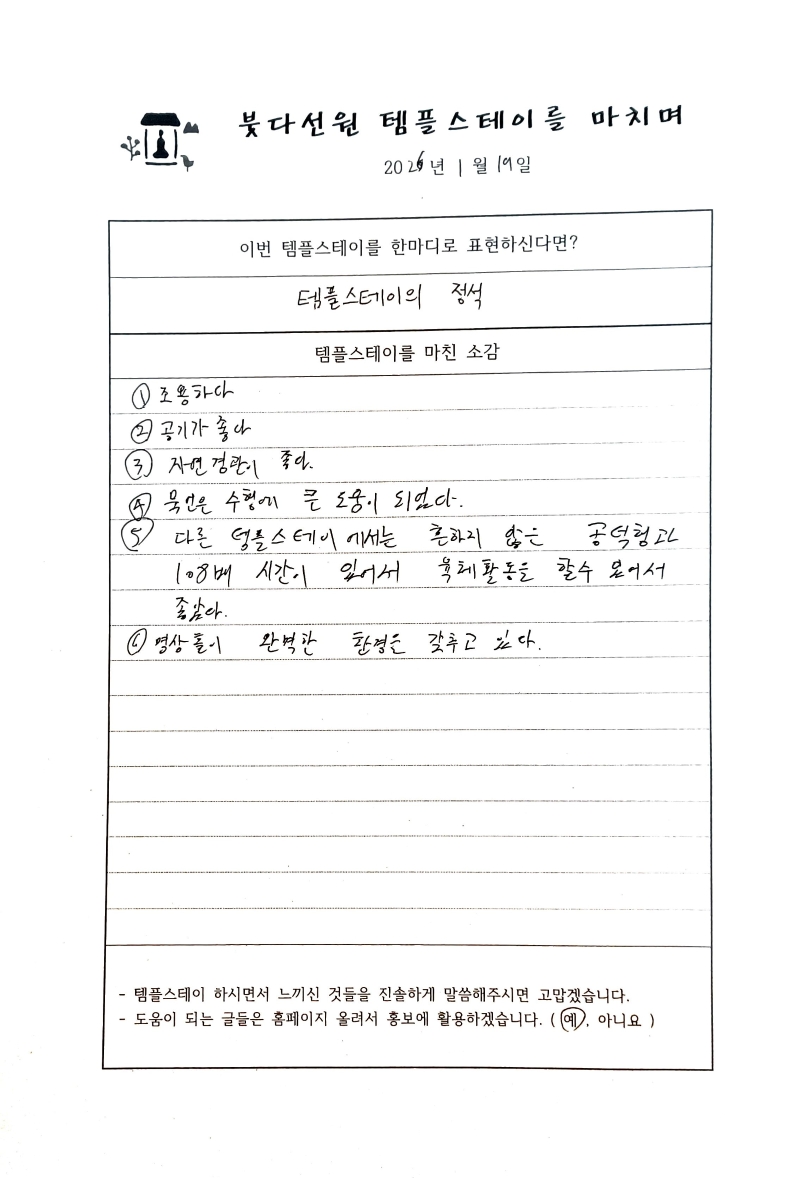 붓다선원 템플스테이를 마치며
2026년 1월 19일
이번 템플스테이를 한마디로 표현하신다면?
템플스테이의 정석
템플스테이를 마친 소감
① 조용하다
② 공기가 좋다
③ 자연경관이 좋다.
④ 묵언은 수행에 큰 도움이 되었다.
⑤ 다른 템플스테이에서는 흔하지 않은 공덕행과
108배 시간이 있어서 육체활동을 할수 있어서
좋았다.
⑥ 명상홀이 완벽한 환경은 갖추고 있다.
- 템플스테이 하시면서 느끼신 것들을 진솔하게 말씀해주시면 고맙겠습니다.
- 도움이 되는 글들은 홈페이지 올려서 홍보에 활용하겠습니다. ( 예, 아니요 )